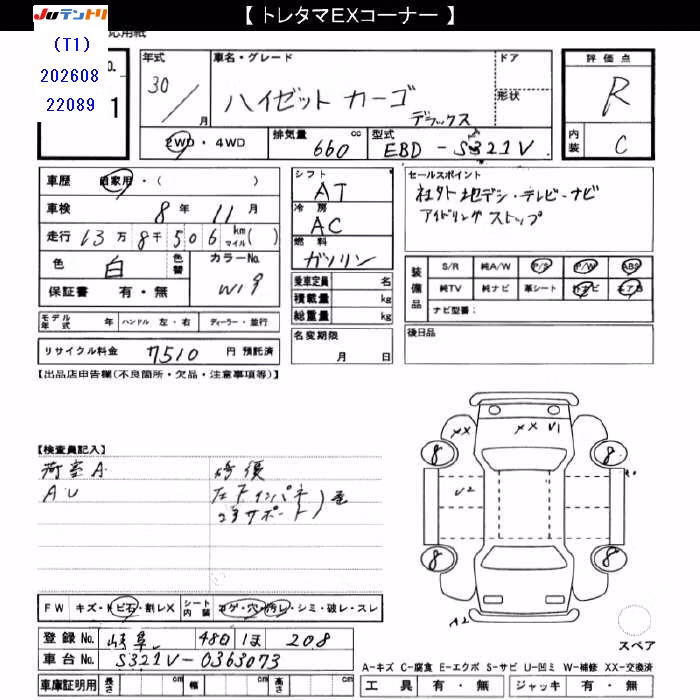 【 トレタマEXコーナー 】
JUテントリ
応用紙
(T1)
202608
22089
No.
1
年式
30 / 月
車名・グレード
ハイゼット カーゴ
デラックス
ドア
形状
評価点
R
内装
C
2WD・4WD
排気量 660 cc
型式 EBD - S321V
車歴 自家用・( )
車検 8年 11月
走行 13万 8千 506 km マイル( )
色 白
色替
カラーNo. W19
保証書 有・無
シフト
AT
冷房
AC
燃料
ガソリン
乗車定員 名
積載量 kg
総重量 kg
セールスポイント
社外 地デジ・テレビ・ナビ
アイドリング ストップ
装備品
S/R 純A/W P/S P/W ABS
純TV 純ナビ 革シート カナビ エアB
ナビ型番:
モデル年式 年 ハンドル 左・右 ディーラー・並行
リサイクル料金 7510 円 預託済
名変期限
月 日
後日品
【出品店申告欄(不良箇所・欠品・注意事項等)】
【検査員記入】
荷室A
AU
修復
左Fインパネ
コアサポート
XX
XX V1
8
8
U2
8
8
A2
スペア
FW キズ・ヒビ石・割レX
シート内装 コゲ・穴・汚レ・シミ・破レ・スレ
登録No. 岐阜 480 ほ 208
車台No. S321V-0363073
車庫証明用 長さ cm 幅 cm 高さ cm
A-キズ C-腐食 E-エクボ S-サビ U-凹ミ W-補修 XX-交換済
工具 有・無 ジャッキ 有・無